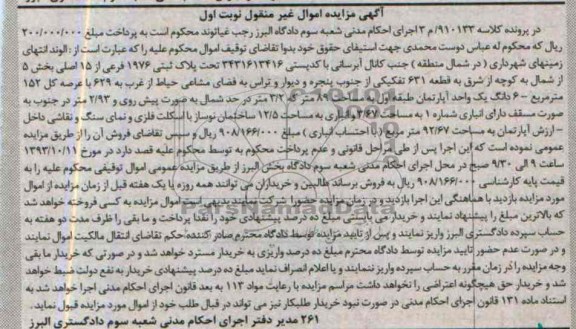 آگهی مزایده اموال غیر منقول نوبت اول
در پرونده کلاسه ۹۱۰۱۳۳/م ۳ اجرای احکام مدنی شعبه سوم دادگاه البرز رجب غیاثوند محکوم است به پرداخت مبلغ ۲۰۰/۰۰۰/۰۰۰
ریال که محکوم له عباس دوست محمدی جهت استیفای حقوق خود بدوا تقاضای توقیف اموال محکوم علیه را که عبارت است از : الوند انتهای
زمینهای شهرداری ( در شمال منطقه ) جنب کانال آبرسانی با کدپستی ۳۴۳۱۶۱۳۴۱۶ تحت پلاک ثبتی ۱۹۷۶ فرعی از ۱۵ اصلی بخش ۵
از شمال به کوچه از شرق به قطعه ۶۳۱ تفکیکی از جنوب پنجره و دیوار و تراس به فضای مشاعی حیاط از غرب به ۶۲۹ با عرصه کل ۱۵۲
مترمربع - ۶ دانگ یک واحد آپارتمان طبقه اول به مساحت ۸۹ متر که ۳/۲ متر در حد شمال به صورت پیش روی و ۲/۹۳ متر در جنوب به
صورت مسقف دارای انباری شماره ۱ به مساحت ۳/۶۷ و انباری به مساحت ۱۲/۵ ساختمان نوساز با اسکلت فلزی و نمای سنگ و نقاشی داخل
- ارزش آپارتمان به مساحت ۹۲/۶۷ متر مربع ( با احتساب انباری ) مبلغ ۹۰۸/۱۶۶/۰۰۰ ریال و سپس تقاضای فروش آن را از طریق مزایده
عمومی نموده است که این اجرا پس از طی مراحل قانونی و عدم پرداخت محکوم به توسط محکوم علیه قصد دارد در مورخ ۱۳۹۳/۱۰/۱۱
ساعت ۹ الی ۹/۳۰ صبح در محل اجرای احکام مدنی شعبه سوم دادگاه بخش البرز از طریق مزایده عمومی اموال توقیفی محکوم علیه را به
قیمت پایه کارشناسی ۹۰۸/۱۶۶/۰۰۰ ریال به فروش برساند طالبین و خریداران می توانند همه روزه یا یک هفته قبل از زمان مزایده از اموال
مورد مزایده بازدید با هماهنگی این اجرا بازدید و در زمان مزایده حضورا شرکت نمایند بدیهی است اموال مزایده به کسی فروخته خواهد شد
که بالاترین مبلغ را پیشنهاد نمایند و خریدار می بایستی مبلغ ده درصد پیشنهادی خود را نقدا پرداخت و ما بقی را ظرف مدت دو هفته به
حساب سپرده دادگستری البرز واریز نمایند و پس از تایید مزایده توسط دادگاه محترم صادر کننده حکم تقاضای انتقال مالکیت اموال نمایند
و در صورت عدم حضور تایید مزایده توسط دادگاه محترم مبلغ ده درصد واریزی به خریدار مسترد خواهد شد و در صورتی که خریدار ما بقی
وجه مزایده را در زمان مقرر به حساب سپرده واریز ننمایند و یا اعلام انصراف نماید مبلغ ده درصد پیشنهادی خریدار به نفع دولت ضبط خواهد
شد و خریدار حق هیچگونه اعتراضی را نخواهد داشت مراسم مزایده با رعایت مواد ۱۱۳ به بعد قانون اجرای احکام مدنی اجرا خواهد شد به
استناد ماده ۱۳۱ قانون اجرای احکام مدنی در صورت نبود خریدار طلبکار نیز می تواند در قبال طلب خود از اموال مورد مزایده قبول نماید.
۲۶۱ مدیر دفتر اجرای احکام مدنی شعبه سوم دادگستری البرز